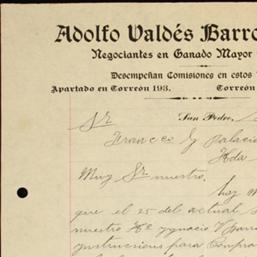 Adolfo Valdés Barro
Negociantes en Ganado Mayor
Desempeñan Comisiones en estos
Apartado en Torreón 193. Torreón
San Pedro,
Sr
Francco Y Palacio
Hda
Muy Sr nuestro.
hoy
que el 25 del actual
nuestro Ho Ygnacio V Barr
ynstrucciones para Compra